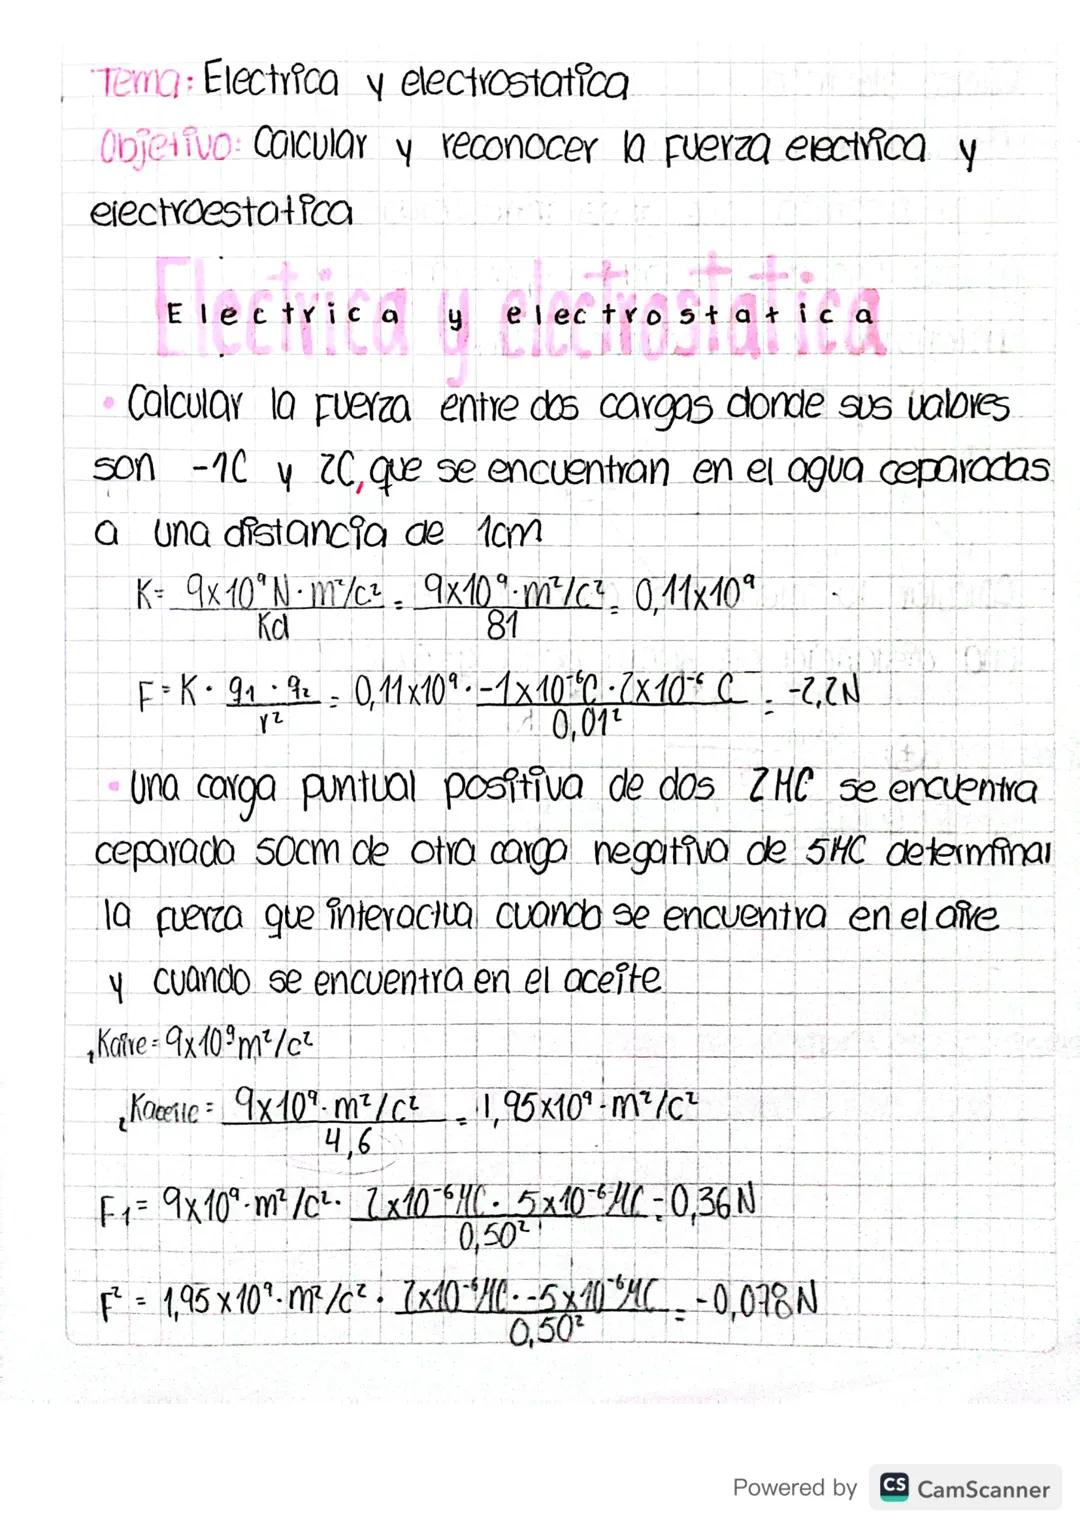 Tema: Electrica y electrostatica
Objetivo: Calcular y reconocer la fuerza electrica y
electroestatica
Electrica y electrostatica
• Calcular la fuerza entre dos cargas donde sus valores
son -1C y 2C, que se encuentran en el agua ceparadas
a una distancia de 1cm
K= 9x10⁹ N·m²/c² / Kd = 9x10⁹·m²/c² / 81 = 0,11x10⁹
F = K · q₁ · q₂ / r² = 0,11x10⁹ · -1x10⁻⁶C · 2x10⁻⁶ C / 0,01² = -2,2N
• Una carga puntual positiva de dos 2MC se encuentra
ceparada 50cm de otra carga negativa de 5MC determinar
la fuerza que interactua cuando se encuentra en el aire
y cuando se encuentra en el aceite
1 Kaire = 9x10⁹ m²/c²
2 Kaceite = 9x10⁹·m²/c² / 4,6 = 1,95x10⁹·m²/c²
F₁ = 9x10⁹·m²/c² · 2x10⁻⁶MC · 5x10⁻⁶MC / 0,50² = 0,36N
F² = 1,95x10⁹·m²/c² · 2x10⁻⁶MC · -5x10⁻⁶MC / 0,50² = -0,078N
Powered by CS CamScanner